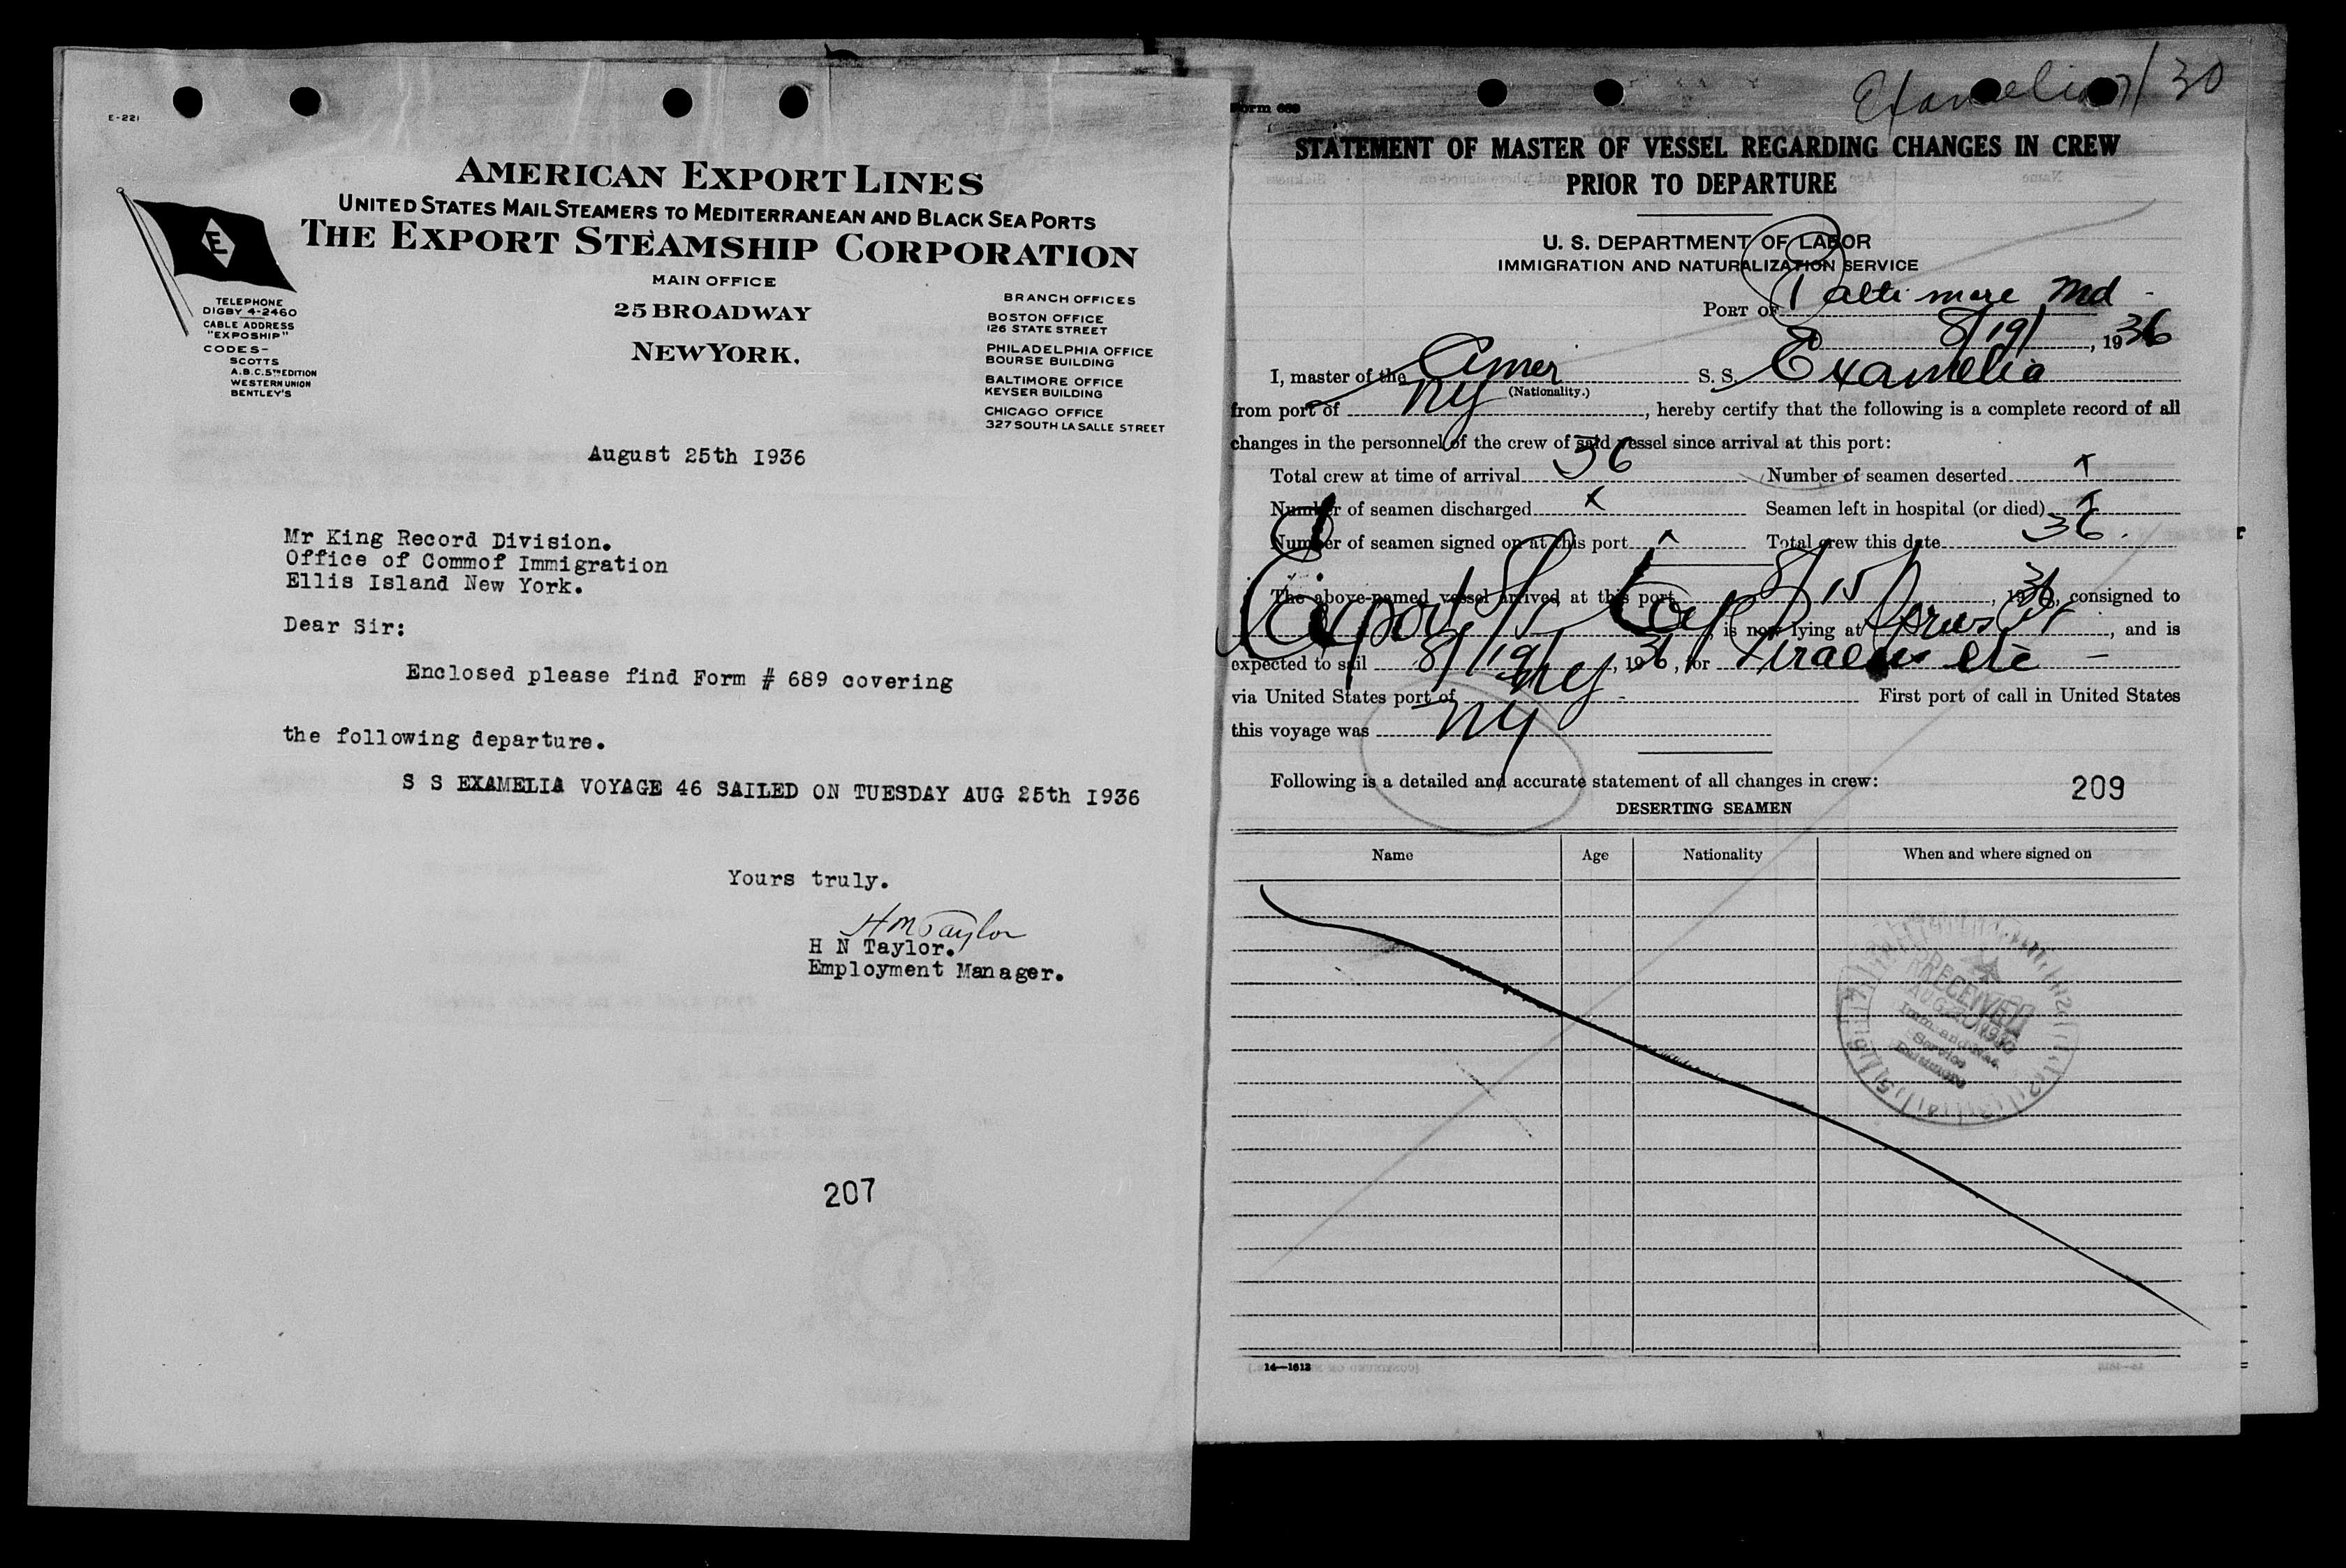 E-221
AMERICAN EXPORT LINES
UNITED STATES MAIL STEAMERS TO MEDITERRANEAN AND BLACK SEA PORTS
THE EXPORT STEAMSHIP CORPORATION
E
MAIN OFFICE
25 BROADWAY
NEW YORK.
TELEPHONE
DIGBY 4-2460
CABLE ADDRESS
"EXPOSHIP"
CODES-
SCOTTS
A.B.C. 5TH EDITION
WESTERN UNION
BENTLEY'S
BRANCH OFFICES
BOSTON OFFICE
126 STATE STREET
PHILADELPHIA OFFICE
BOURSE BUILDING
BALTIMORE OFFICE
KEYSER BUILDING
CHICAGO OFFICE
327 SOUTH LA SALLE STREET
August 25th 1936
Mr King Record Division.
Office of Commof Immigration
Ellis Island New York.
Dear Sir:
Enclosed please find Form # 689 covering
the following departure.
S S EXAMELIA VOYAGE 46 SAILED ON TUESDAY AUG 25th 1936
Yours truly.
H N Taylor
H N Taylor.
Employment Manager.
207
Form 689
Examelia 7/30
STATEMENT OF MASTER OF VESSEL REGARDING CHANGES IN CREW
PRIOR TO DEPARTURE
U. S. DEPARTMENT OF LABOR
IMMIGRATION AND NATURALIZATION SERVICE
PORT OF Baltimore Md -
8/19/, 1936
I, master of the Amer S. S. Examelia
(Nationality.)
from port of NY, hereby certify that the following is a complete record of all
changes in the personnel of the crew of said vessel since arrival at this port:
Total crew at time of arrival 36 Number of seamen deserted x
Number of seamen discharged x Seamen left in hospital (or died) x
Number of seamen signed on at this port x Total crew this date 36.
The above-named vessel arrived at this port 8/15/, 1936, consigned to
Export SS Corp, is now lying at, and is
expected to sail 8/19/, 1936, for Piraeus etc -
via United States port of NY - First port of call in United States
this voyage was NY
Following is a detailed and accurate statement of all changes in crew:
209
DESERTING SEAMEN
Name Age Nationality When and where signed on
RECEIVED
AUG 20 1936
Imm. and Nat.
Service
Baltimore
14—1613